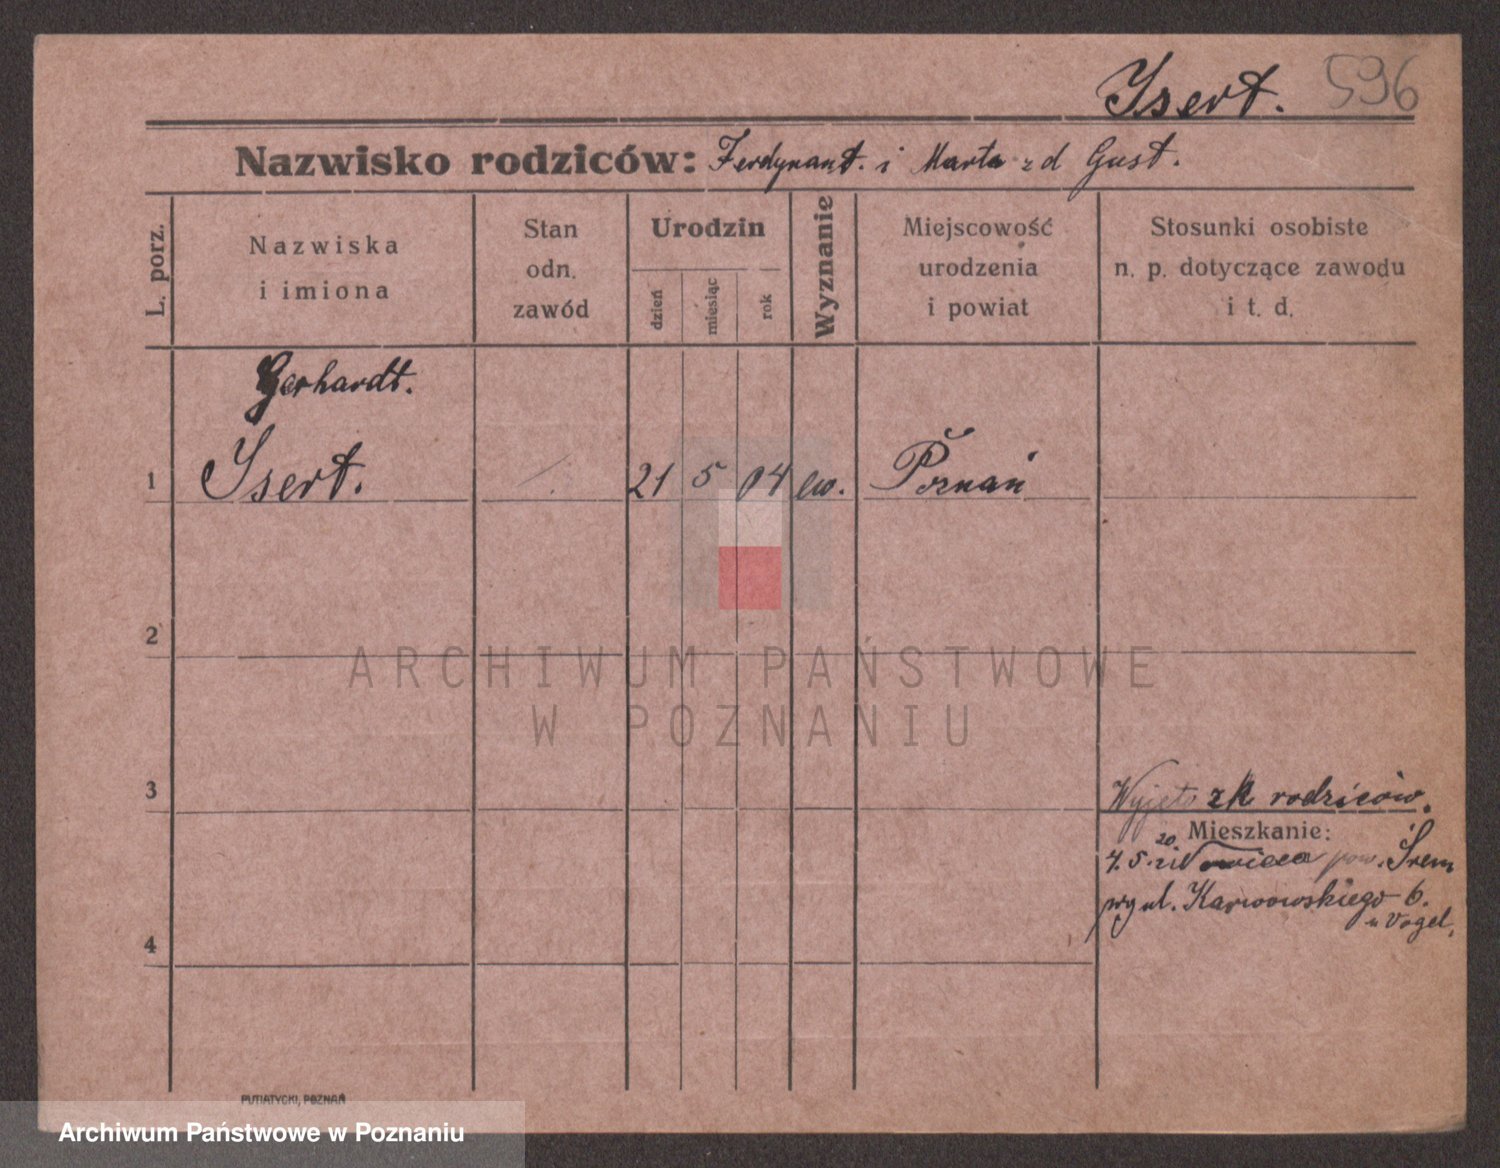 Isert. 596
Nazwisko rodziców: Ferdynant. i Marta z d Gust.
L. porz.
Nazwiska
i imiona
Stan
odn.
zawód
Urodzin
dzień
miesiąc
rok
Wyznanie
Miejscowość
urodzenia
i powiat
Stosunki osobiste
n. p. dotyczące zawodu
i t. d.
Gerhardt.
1 Isert. 21 5 04 ew. Poznań
2
ARCHIWUM PAŃSTWOWE
W POZNANIU
3
Wyjęto z k rodziców.
Mieszkanie:
20
4.5. pow. Śrem
ul. Karwowskiego 6.
u Vogel.
4
PUTIATYCKI, POZNAŃ
Archiwum Państwowe w Poznaniu